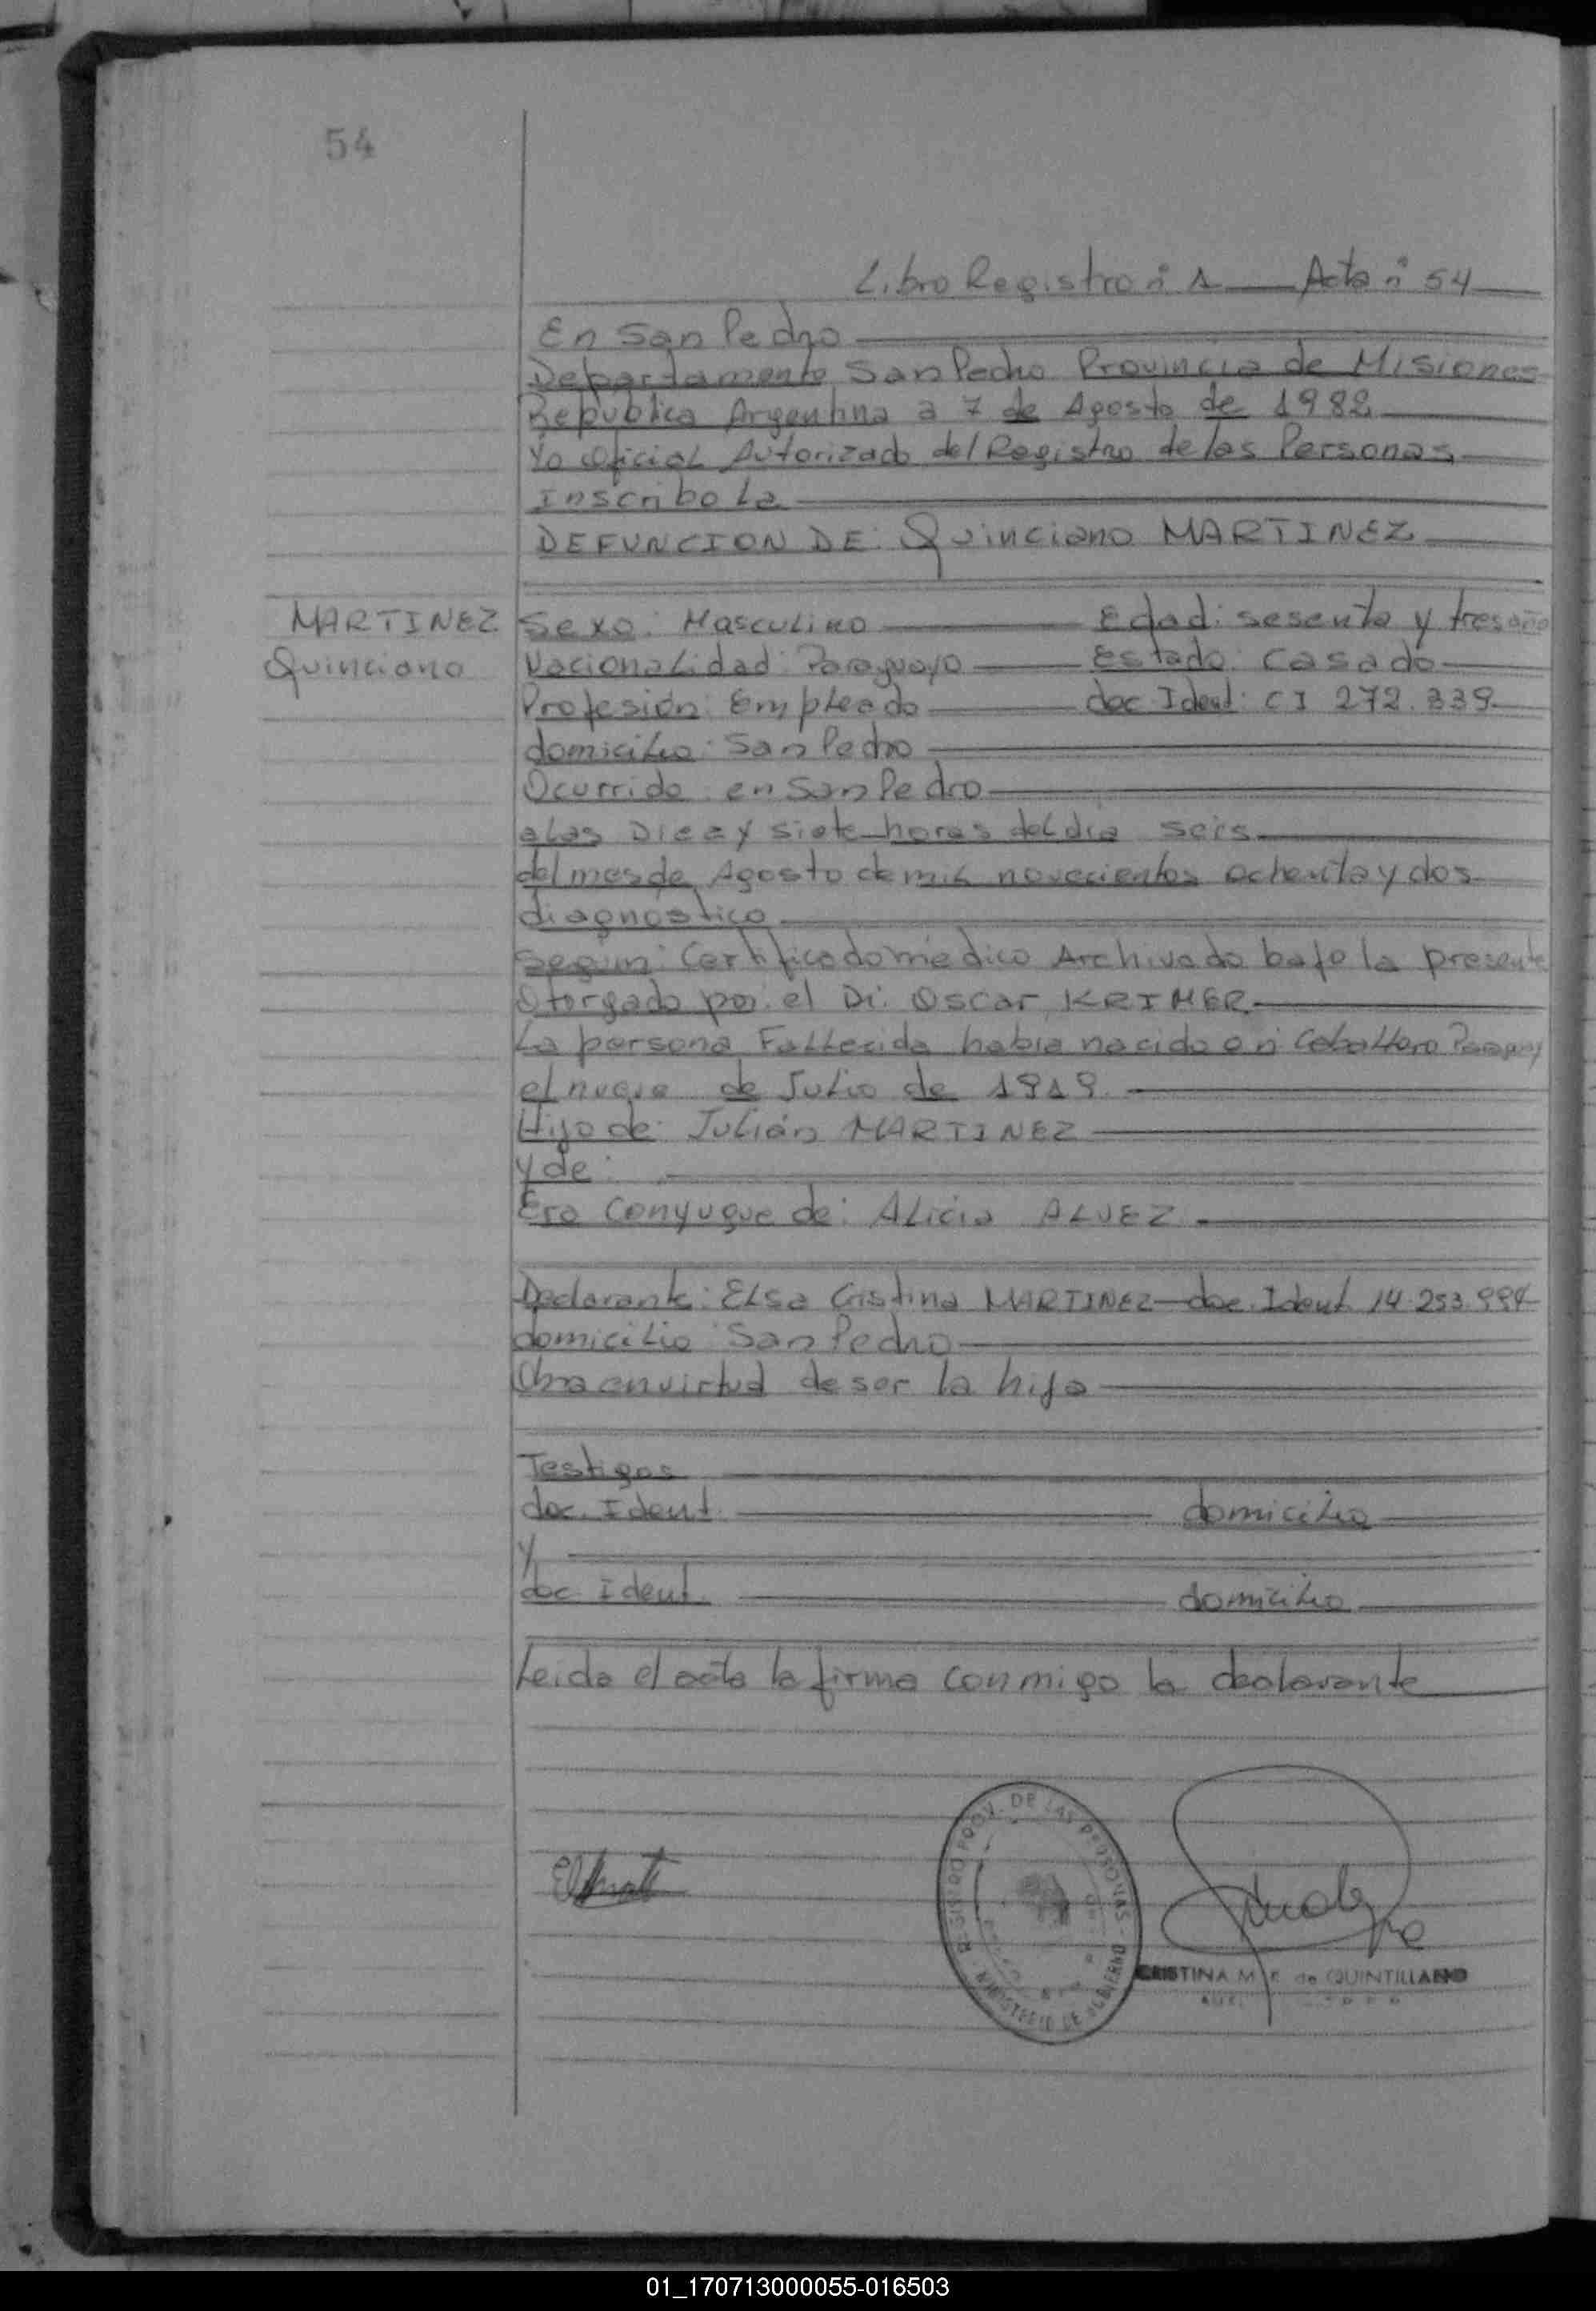 54
Libro Registro n° 1 Acta n° 54
En San Pedro
Departamento San Pedro Provincia de Misiones
Republica Argentina a 7 de Agosto de 1982
Yo Oficial Autorizado del Registro de las Personas
Inscribo La
DEFUNCION DE: Quinciano MARTINEZ
MARTINEZ
Quinciano
Sexo: Masculino Edad: sesenta y tres años
Nacionalidad: Paraguayo Estado: Casado
Profesión: Empleado doc Ident: CI 272.339
domicilio: San Pedro
Ocurrida en San Pedro
a las Diez y siete horas del dia seis
del mes de Agosto de mil novecientos ochenta y dos
diagnostico
Segun: Certificado médico Archivado bajo la presente
Otorgado por: el Dr. Oscar KRIMER
La persona Fallecida habia nacido en: Caballero Paraguay
el nueve de Julio de 1919
Hijo de: Julián MARTINEZ
y de:
Era Conyugue de: Alicia ALVEZ
Declarante: Elsa Cristina MARTINEZ doc. Ident. 14.253.994
domicilio: San Pedro
Obra en virtud de ser la hija
Testigos
doc. Ident. domicilio
y
doc. Ident. domicilio
Leida el acta la firma conmigo la declarante
REGISTRO PROV. DE LAS PERSONAS - MINISTERIO DE GOBIERNO
CRISTINA M. de QUINTILLANO
01_170713000055-016503